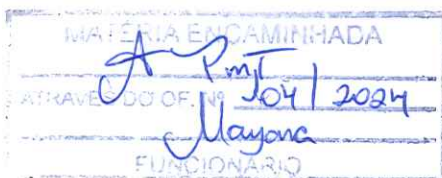 MATÉRIA ENCAMINHADA
A PmT
ATRAVÉS DO OF. Nº 104/2024
Mayana
FUNCIONÁRIO